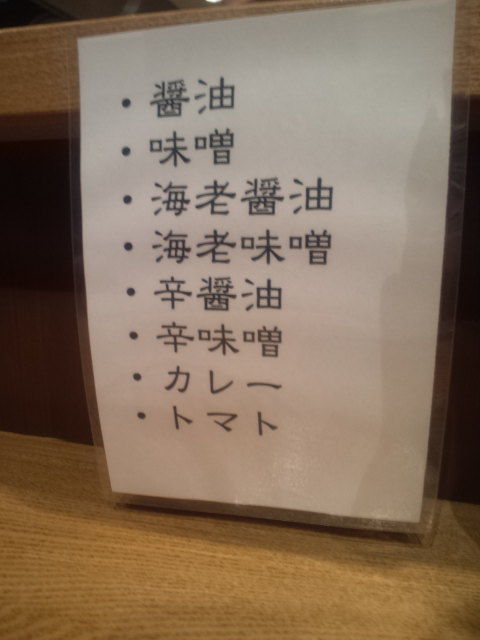 ・醤油
・味噌
・海老醤油
・海老味噌
・辛醤油
・辛味噌
・カレー
・トマト